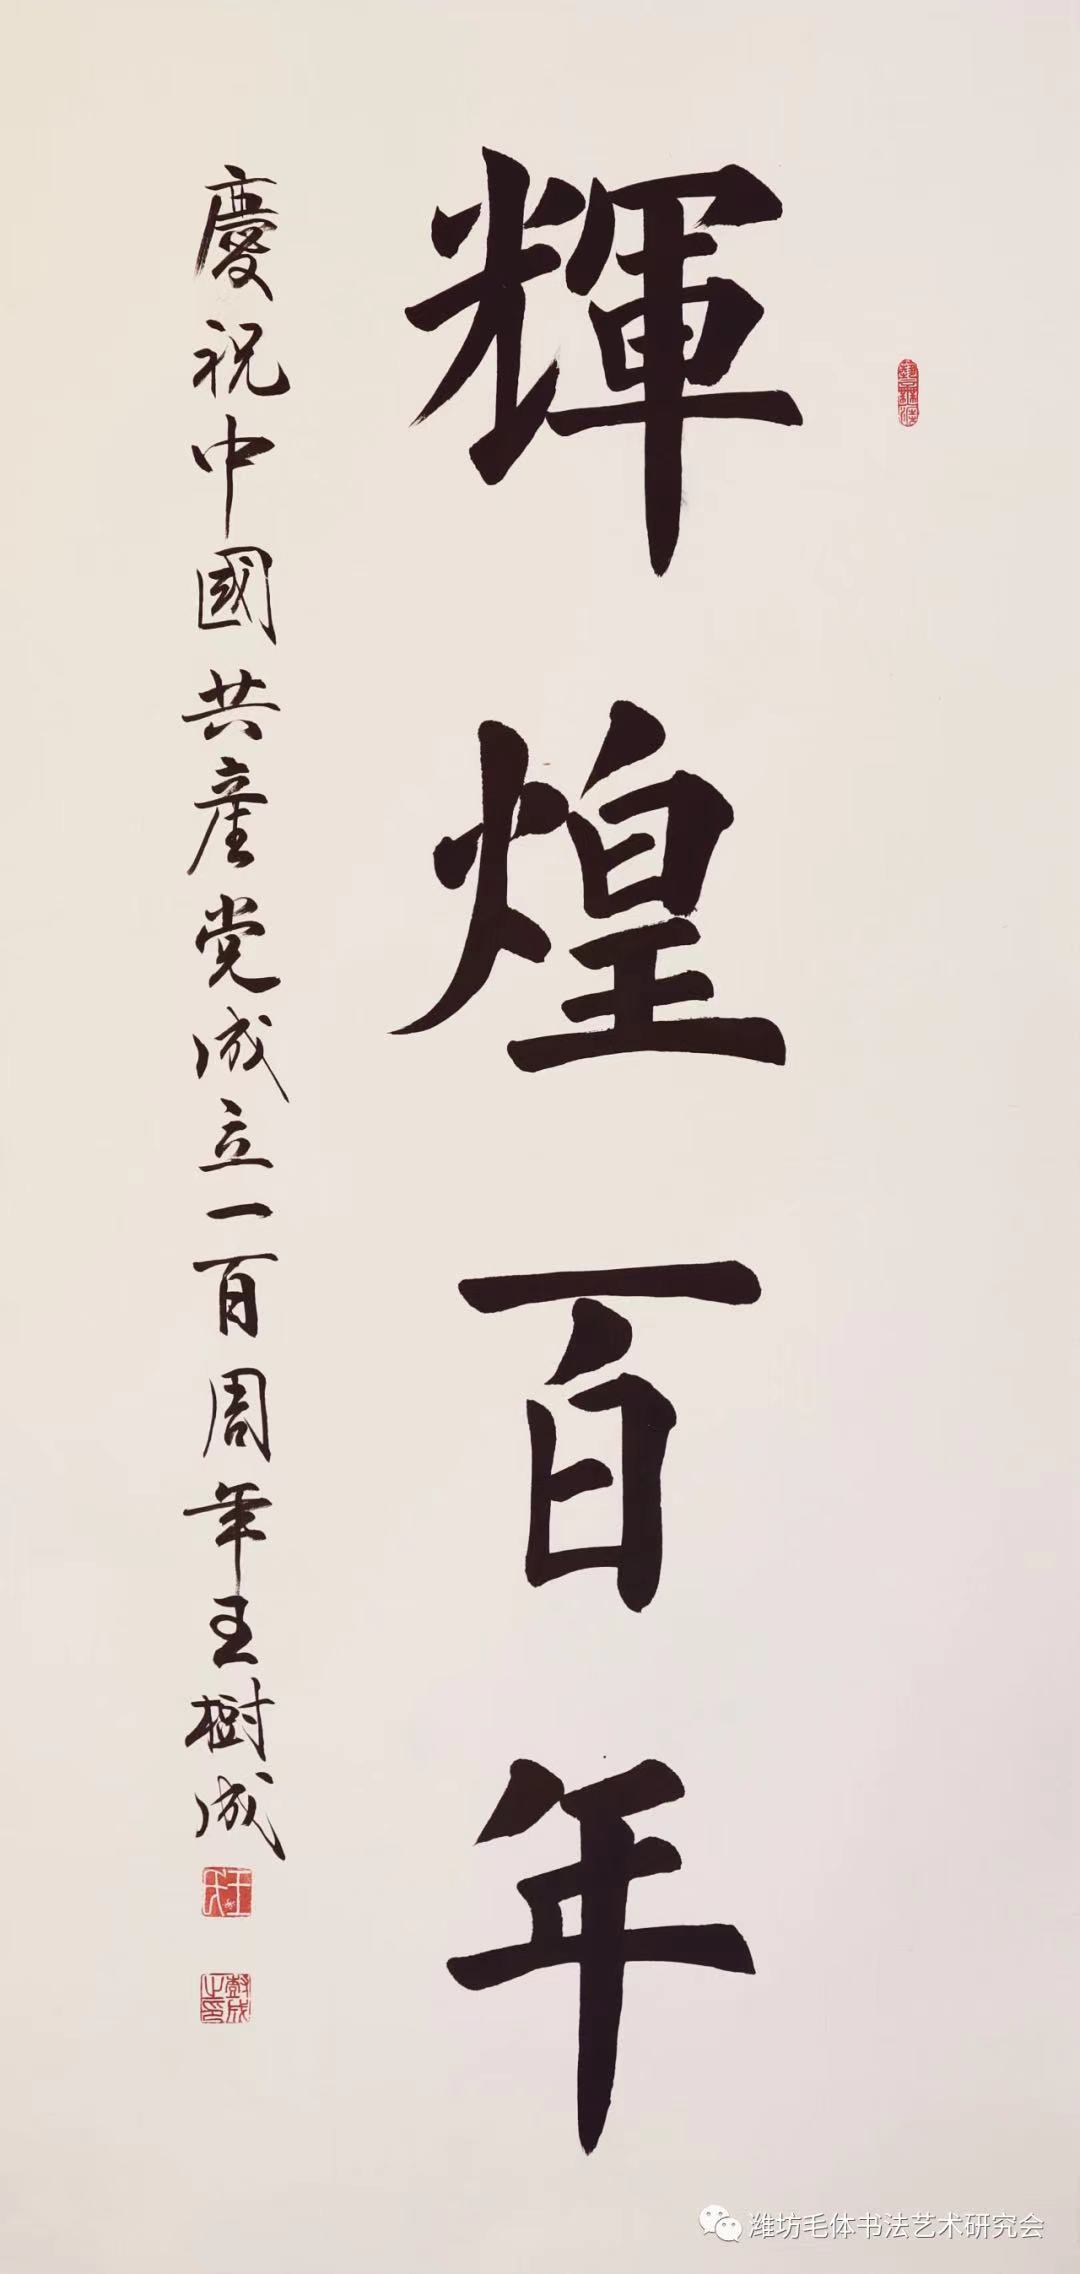 輝煌百年
慶祝中國共產党成立一百周年王樹成
王
樹成之印
潍坊毛体书法艺术研究会